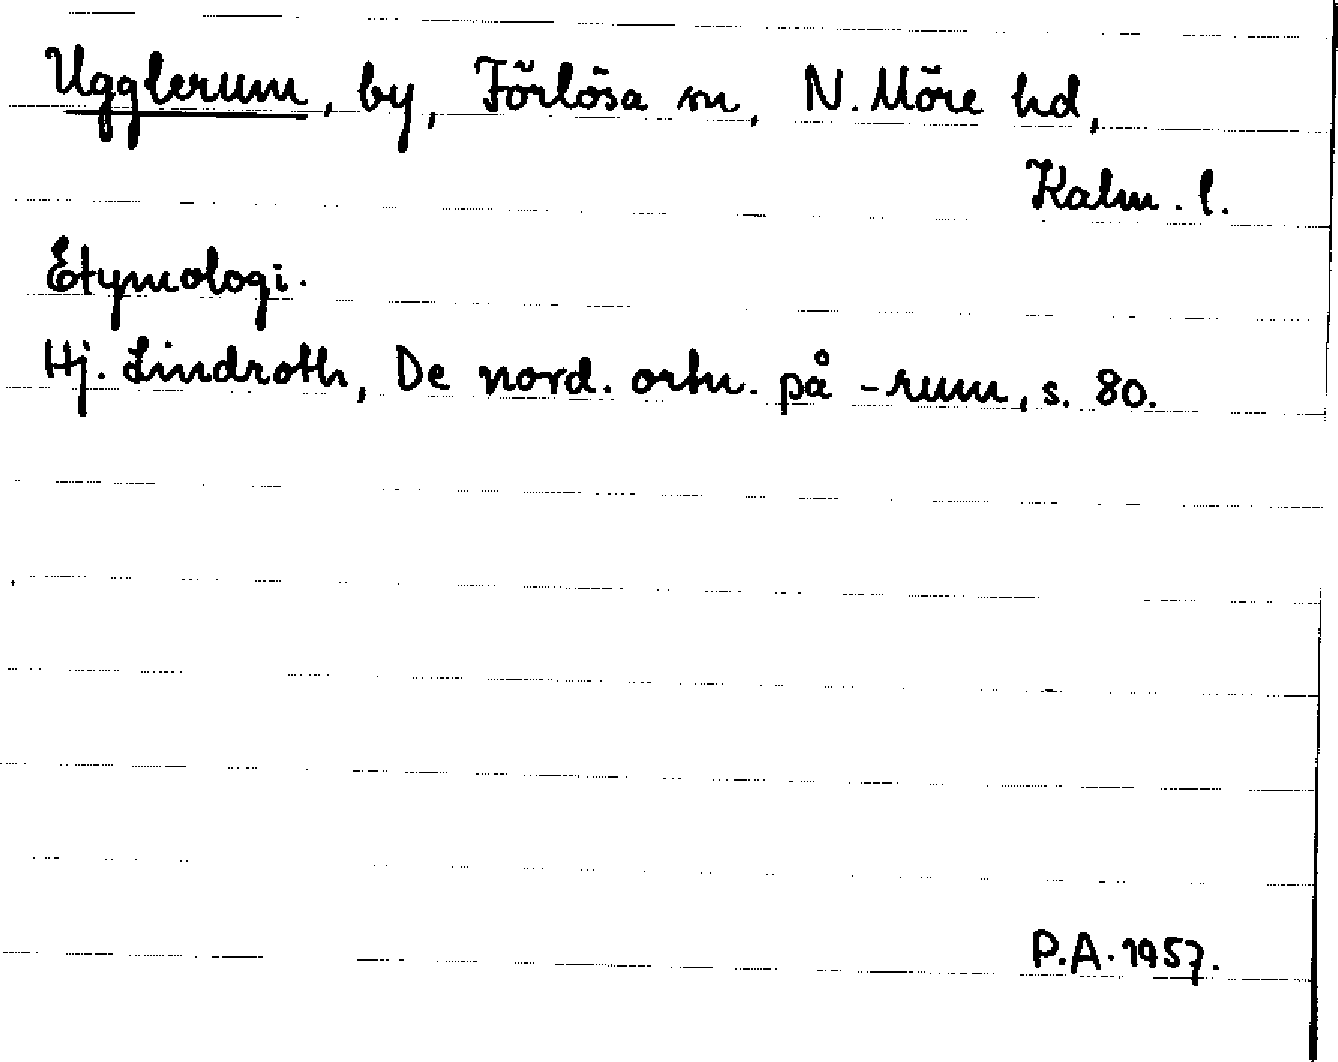 Ugglerum, by, Förlösa sn, N. Möre hd,
Kalm. l.
Etymologi.
Hj. Lindroth, De nord. ortn. på -rum, s. 80.
P.A. 1957.